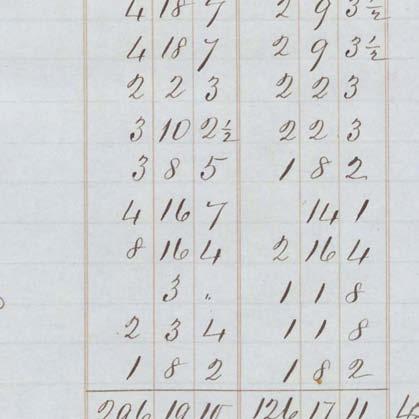 4 18 7 2 9 3½
4 18 7 2 9 3½
2 2 3 2 2 3
3 10 2½ 2 2 3
3 8 5 1 8 2
4 16 7 14 1
8 16 4 2 16 4
3 " 1 1 8
2 3 4 1 1 8
1 8 2 1 8 2
296 19 10 126 17 11